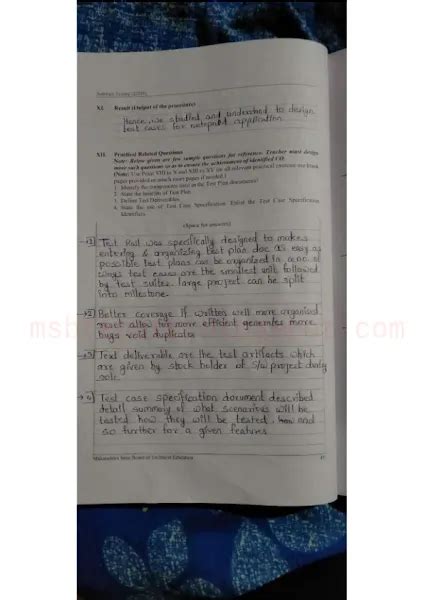 Software Testing (22518)
XI. Result (Output of the procedure)
Hence, we studied and understand to design
test cases for notepad application.
XII. Practical Related Questions
Note: Below given are few sample questions for reference. Teacher must design
more such questions so as to ensure the achievement of identified CO.
(Note: Use Point VIII to X and XIII to XV for all relevant practical exercise use blank
paper provided or attach more pages if needed.)
1. Identify the components used in the Test Plan documents?
2. State the benefits of Test Plan
3. Define Test Deliverables.
4. State the use of Test Case Specification. Enlist the Test Case Specification
Identifiers.
(Space for answers)
→1) Test Rail was specifically designed to makes
entering & organizing test plan doc as easy as
possible test plans can be organized in a no. of
ways test cases are the smallest unit followed
by test suites. large project can be split
into milestone.
→2) Better coverage if written well more organised
reset allow for more efficient generates more
bugs void duplicates
→3) Text deliverable are the test artifacts which
are given by stock holder of S/w project
→4) Test case specification document described
detail summary of what scenarios will be
tested how they will be tested, how and
so further for a given features
Maharashtra State Board of Technical Education